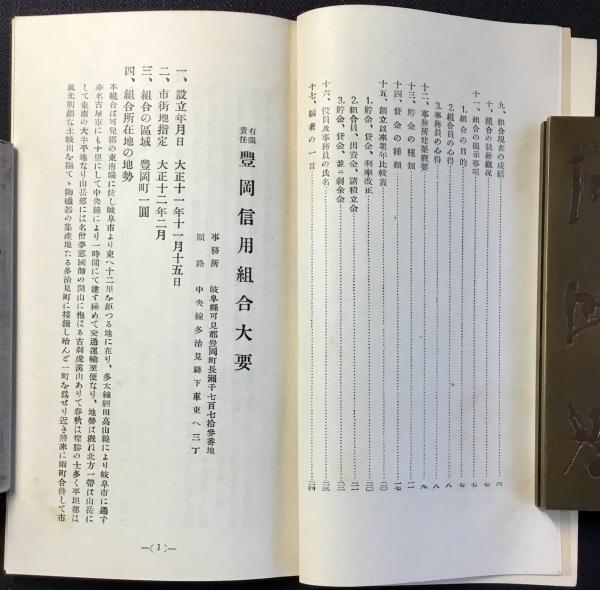 九、組合現在の成績……六
十、組合の執務概況……七
十一、組合の揭示事項……七
1.組合の目的……七
2.組合員の心得……八
3.事務員の心得……八
十二、事務所建築概要……九
十三、貯金の種類……一一
十四、貸金の種類……一七
十五、創立以來累年比較表……二〇
1.貯金、貸金、利率改正……二〇
2.組合員、出資金、諸積立金……二一
3.貯金、貸金、並ニ剩余金……二二
十六、役員及事務員の氏名……二三
十七、編者の一言……二四
有限責任 豐岡信用組合大要
事務所 岐阜縣可兒郡豊岡町長瀬千七百七拾參番地
順路 中央線多治見驛下車東へ三丁
一、設立年月日 大正十一年十一月十五日
二、市街地指定 大正十二年二月
三、組合の區域 豊岡町一圓
四、組合所在地の地勢
本組合は可兒郡の東南端に位し岐阜市より東へ十二里を距つる地に在り、多太線經由高山線により岐阜市に通す
亦名古屋市にも十里にして中央線により一時間にて達す極めて交通運輸至便なり、地勢は概ね北方一帶は山岳に
して東南の大半平地なり山岳部には名僧夢窓國師の開山に抱はる古刹虎溪山ありて春秋は探勝の士多く平坦部は
風光明媚な土岐川を隔てゝ陶磁器の集產地たる多治見町に接續し殆んど一町を爲せり近き將來に兩町合倂して市
―(1)―